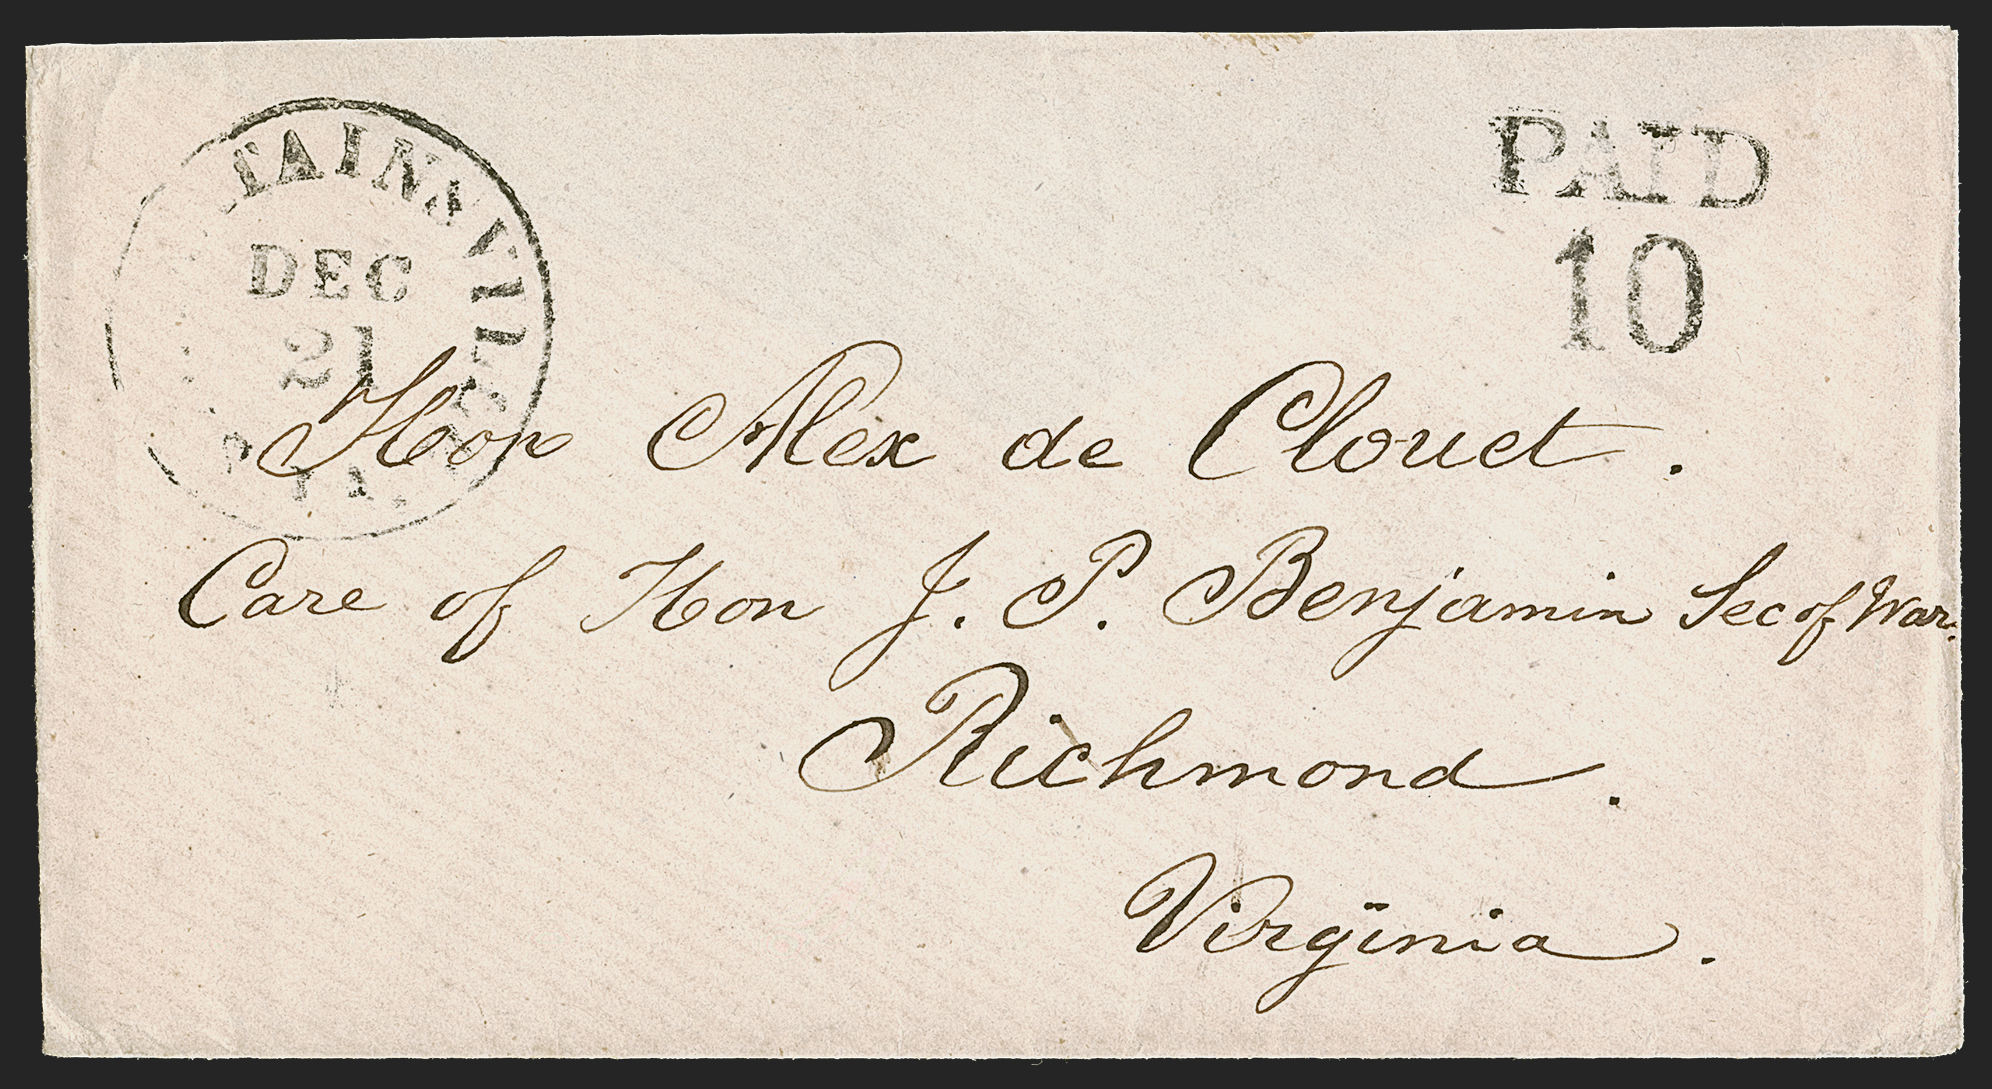 TAINSVIL
DEC
21
PAID
10
Hon Alex de Clouet.
Care of Hon J. P. Benjamin Sec of War.
Richmond.
Virginia.